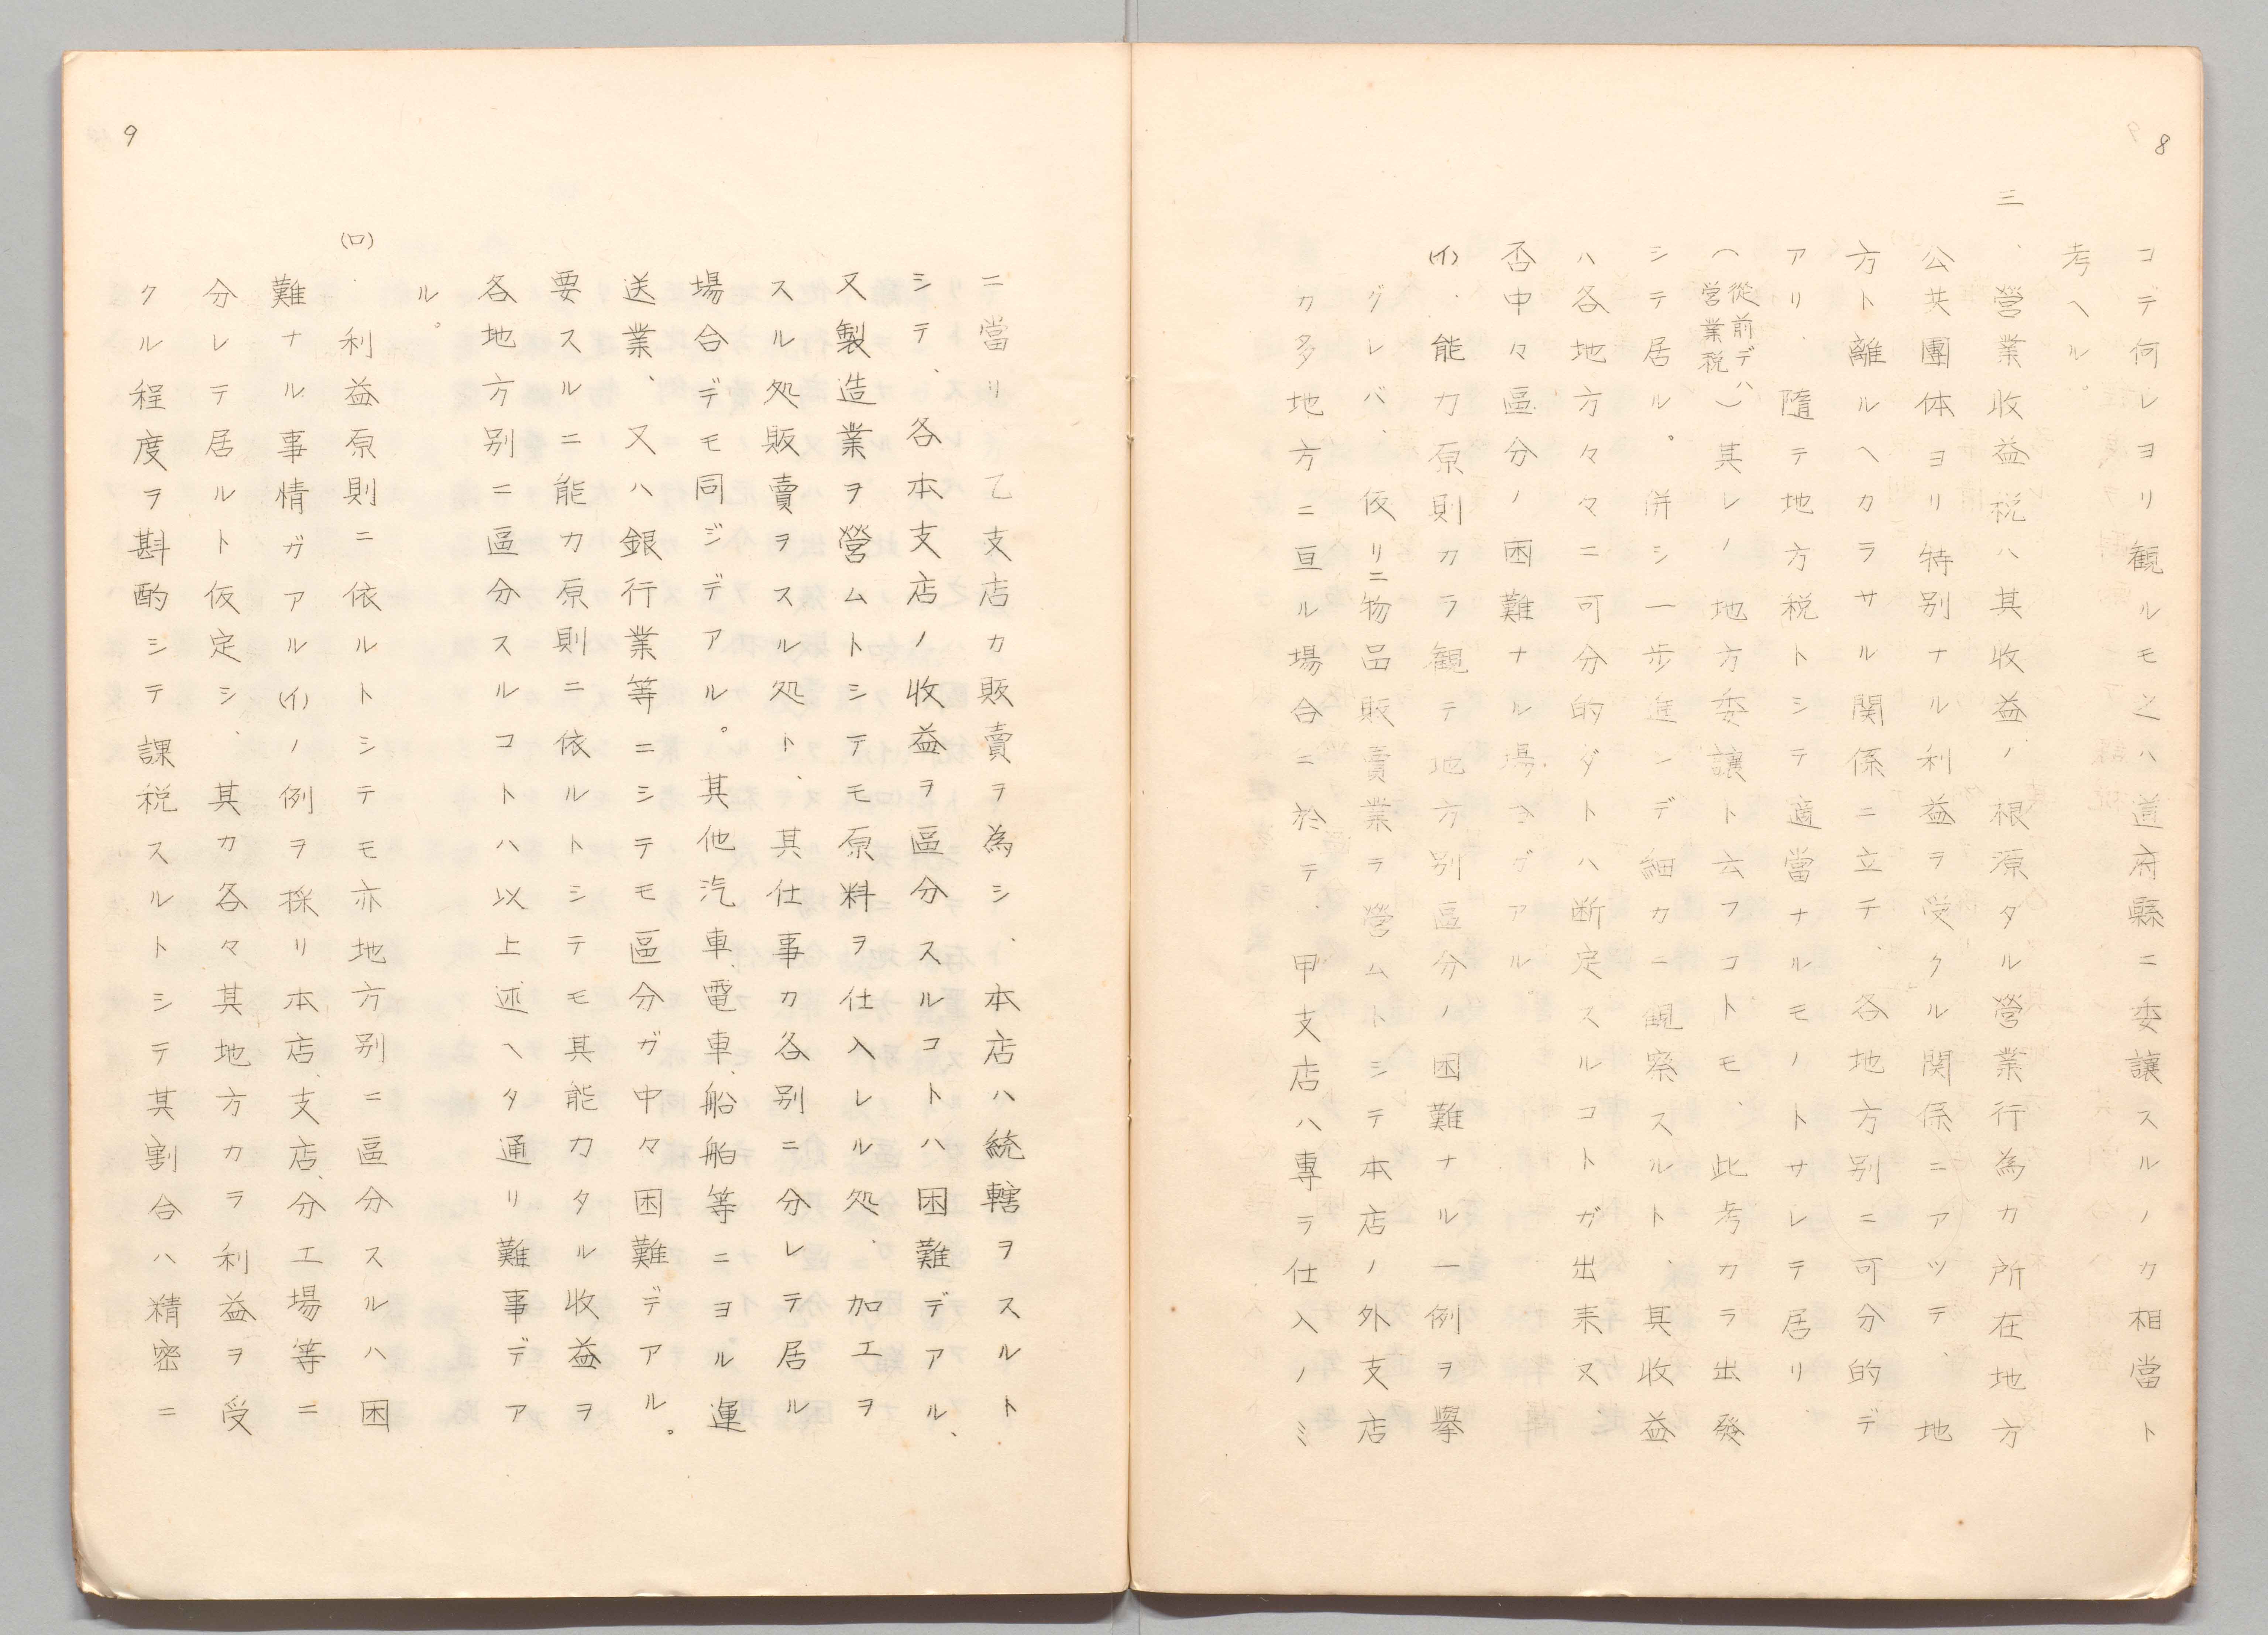 8
コデ何レヨリ観ルモ之ハ道府縣ニ委讓スルノカ相當ト
考ヘル。
三、營業收益税ハ其收益ノ根源タル營業行為カ所在地方
公共團体ヨリ特別ナル利益ヲ受クル関係ニアツテ、地
方ト離ルヘカラサル関係ニ立チ、各地方別ニ可分的デ
アリ、隨テ地方税トシテ適當ナルモノトサレテ居リ
(從前デハ営業税)其レノ地方委讓ト云フコトモ、此考カラ出發
シテ居ル。併シ一歩進ンデ細カニ観察スルト、其收益
ハ各地方々々ニ可分的ダトハ断定スルコトガ出来ヌ、
否中々區分ノ困難ナル場合ガアル。
(イ)、能力原則カラ観テ地方別區分ノ困難ナル一例ヲ擧
グレバ、仮リニ物品販賣業ヲ營ムトシテ本店ノ外支店
カ多地方ニ亘ル場合ニ於テ、甲支店ハ専ラ仕入ノミ
9
ニ當リ、乙支店カ販賣ヲ為シ、本店ハ統轄ヲスルト
シテ、各本支店ノ收益ヲ區分スルコトハ困難デアル、
又製造業ヲ營ムトシテモ原料ヲ仕入レル処、加工ヲ
スル処販賣ヲスル処ト、其仕事カ各別ニ分レテ居ル
場合デモ同ジデアル。其他汽車、電車、船舶等ニヨル運
送業、又ハ銀行業等ニシテモ區分ガ中々困難デアル。
要スルニ能力原則ニ依ルトシテモ其能力タル收益ヲ
各地方別ニ區分スルコトハ以上述ヘタ通リ難事デア
ル。
(ロ)、利益原則ニ依ルトシテモ亦地方別ニ區分スルハ困
難ナル事情ガアル(イ)ノ例ヲ採リ本店、支店、分工場等ニ
分レテ居ルト仮定シ、其カ各々其地方カラ利益ヲ受
クル程度ヲ斟酌シテ課税スルトシテ其割合ハ精密ニ